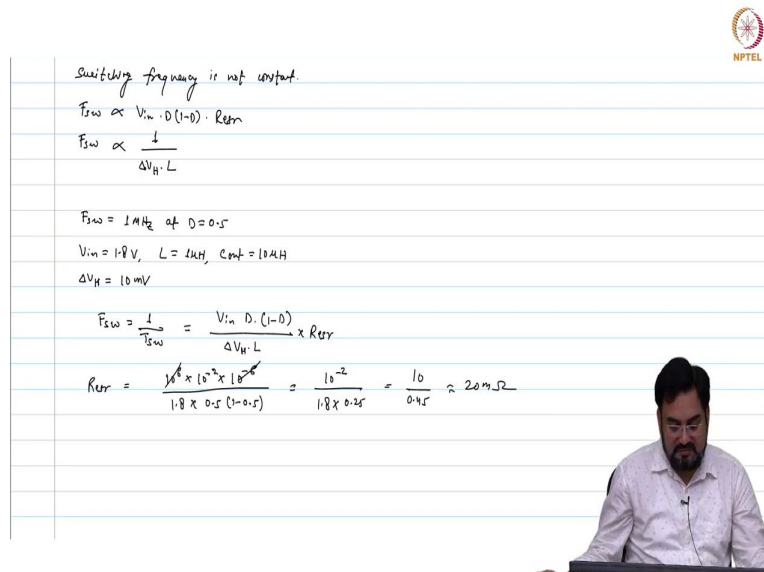 NPTEL
Switching frequency is not constant.
Fsw ∝ Vin · D(1-D) · Resr
Fsw ∝ 1 / ΔVH · L
Fsw = 1MHz at D = 0.5
Vin = 1.8V, L = 1μH, Cout = 10μH
ΔVH = 10mV
Fsw = 1 / Tsw = Vin D. (1-D) / ΔVH · L × Resr
Resr = 10^6 × 10^-2 × 10^-6 / 1.8 × 0.5 (1-0.5) = 10^-2 / 1.8 × 0.25 = 10 / 0.45 ≈ 20mΩ